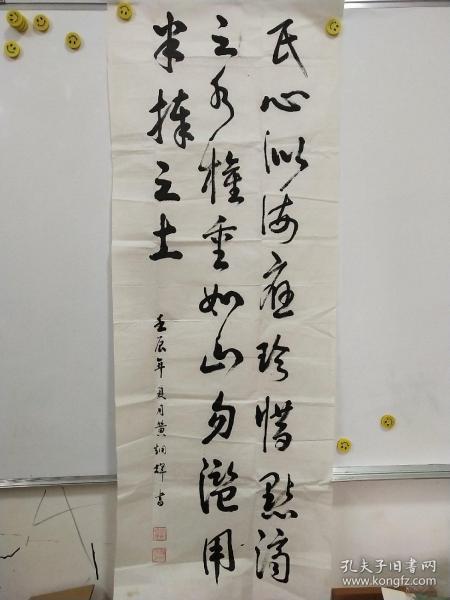 民心似海应珍惜点滴
之水權重如山勿濫用
半捧之土
壬辰年夏月黄炯辉書
孔夫子旧书网
www.kongfz.com